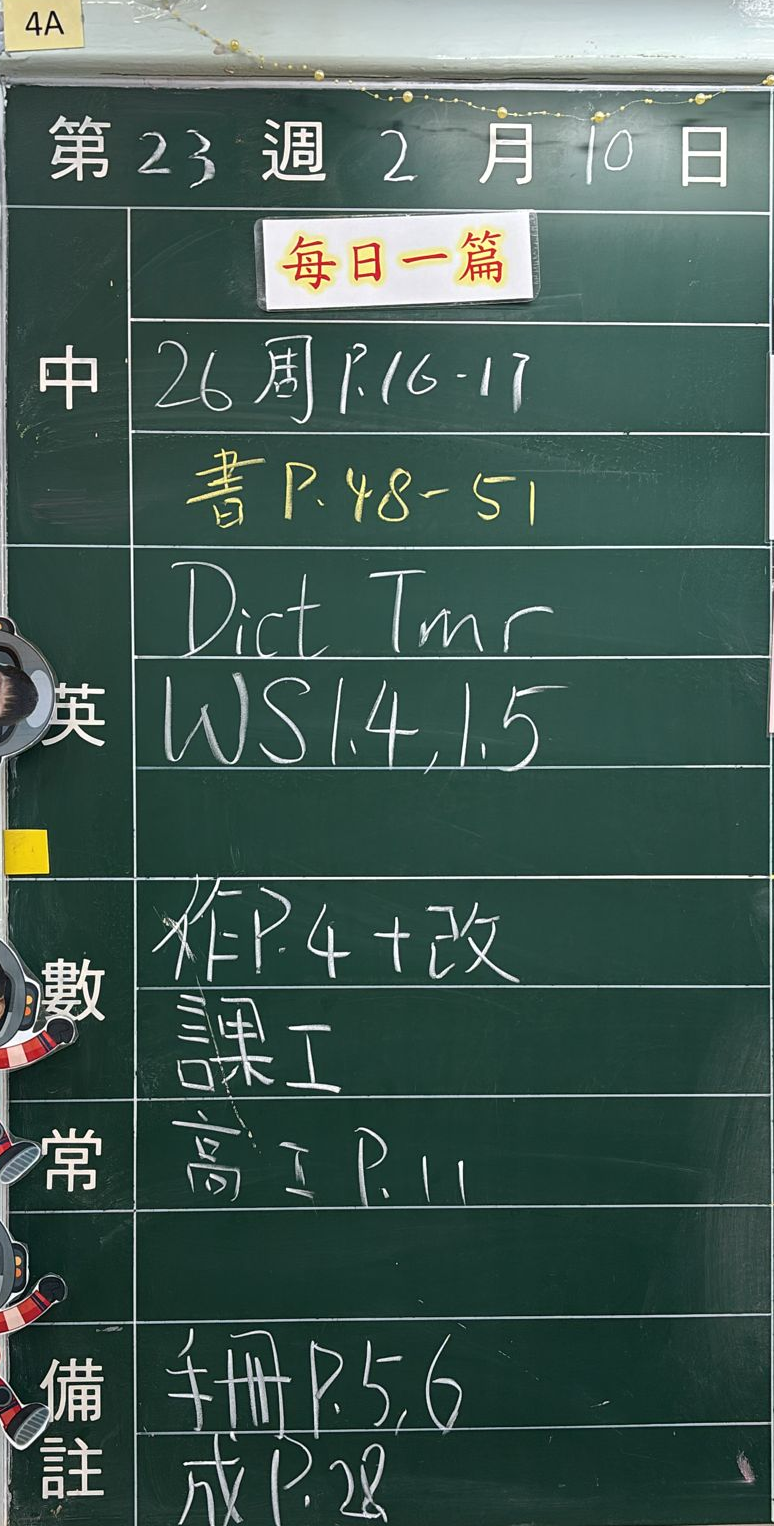 4A
第 23 週 2 月 10 日
每日一篇
中
26 周 P.16-17
書 P.48-51
英
Dict Tmr
WS 1.4, 1.5
數
作 P.4 + 改
課工
常
高工 P.11
備註
手冊 P.5,6
成 P.28